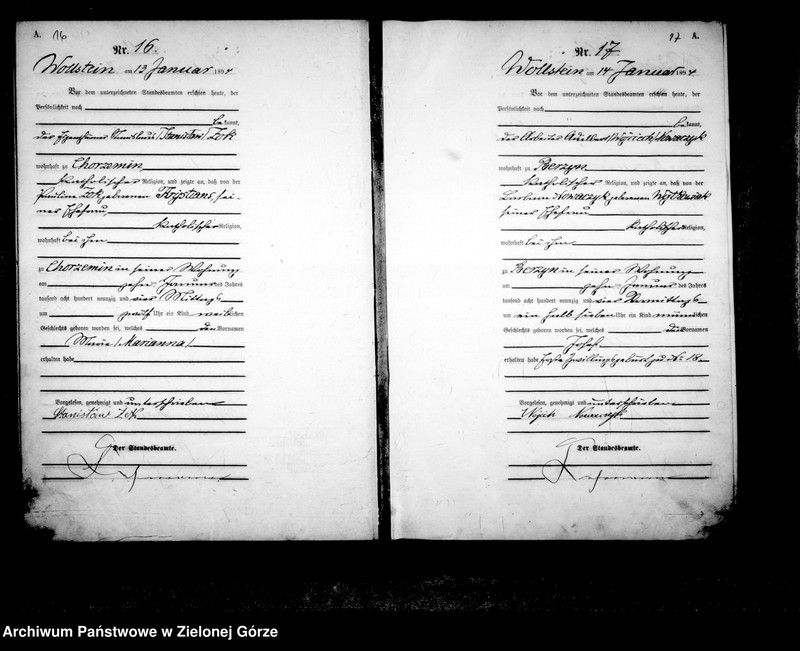 A. 16
Nr. 16.
Wollstein am 13 Januar 1894
Vor dem unterzeichneten Standesbeamten erschien heute, der
Persönlichkeit nach
bekannt,
der Eigenthümer Stanislaus /Stanisław/
wohnhaft zu Chorzemin
katholischer Religion, und zeigte an, daß von der
Pauline geborenen sei-
ner Ehefrau
katholischer Religion,
wohnhaft bei ihm
zu Chorzemin in seiner Wohnung
am zehn Januar des Jahres
tausend acht hundert neunzig und vier Mittags
um zwölf Uhr ein Kind weiblichen
Geschlechts geboren worden sei, welches den Vornamen
Marie /Marianna/
erhalten habe
Vorgelesen, genehmigt und unterschrieben
Stanisław
Der Standesbeamte.
17 A.
Nr. 17.
Wollstein am 14 Januar 1894
Vor dem unterzeichneten Standesbeamten erschien heute, der
Persönlichkeit nach
bekannt,
der Arbeiter Adalbert /Wojciech/ Nowaczyk
wohnhaft zu Berzyn
katholischer Religion, und zeigte an, daß von der
Nowaczyk geborenen
seiner Ehefrau
katholischer Religion,
wohnhaft bei ihm
zu Berzyn in seiner Wohnung
am zehn Januar des Jahres
tausend acht hundert neunzig und vier Vormittags
um ein halb sieben Uhr ein Kind männlichen
Geschlechts geboren worden sei, welches den Vornamen
Josef
erhalten habe Zwillingsgeburt zu Nr. 18
Vorgelesen, genehmigt und unterschrieben
Nowaczyk
Der Standesbeamte.
Archiwum Państwowe w Zielonej Górze